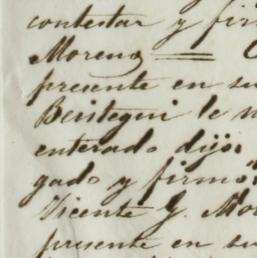 contestar y fir
Moreno
presente en su
Beistegui le n
enterado dijo:
gado y firmó
Vicente G. Mor
presente en su